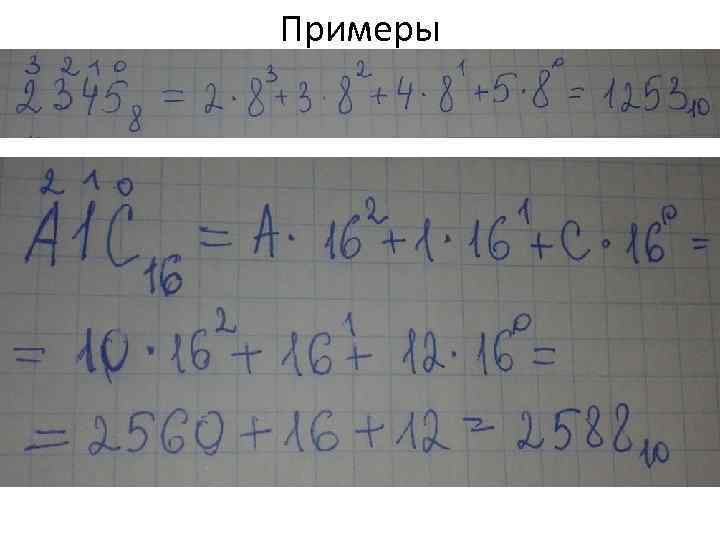 Примеры
3 2 1 0
2345₈ = 2·8³+3·8²+4·8¹+5·8⁰ = 1253₁₀
2 1 0
A1C₁₆ = A·16²+1·16¹+C·16⁰ =
= 10·16²+16¹+12·16⁰ =
= 2560+16+12 = 2588₁₀